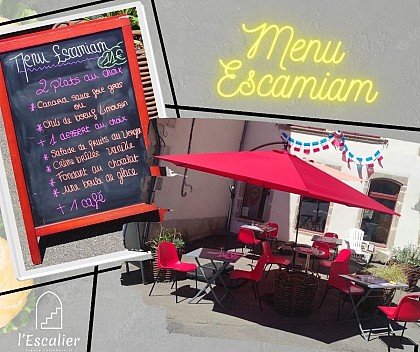 Menu Escamiam
2 plats au choix
* Canard sauce foie gras
ou
* Chili de bœuf Limousin
+ 1 dessert au choix
* Salade de fruits du Verger
* Crème brûlée vanille
* Fondant au chocolat
* une boule de glace
+ 1 café
Menu
Escamiam
l'Escalier